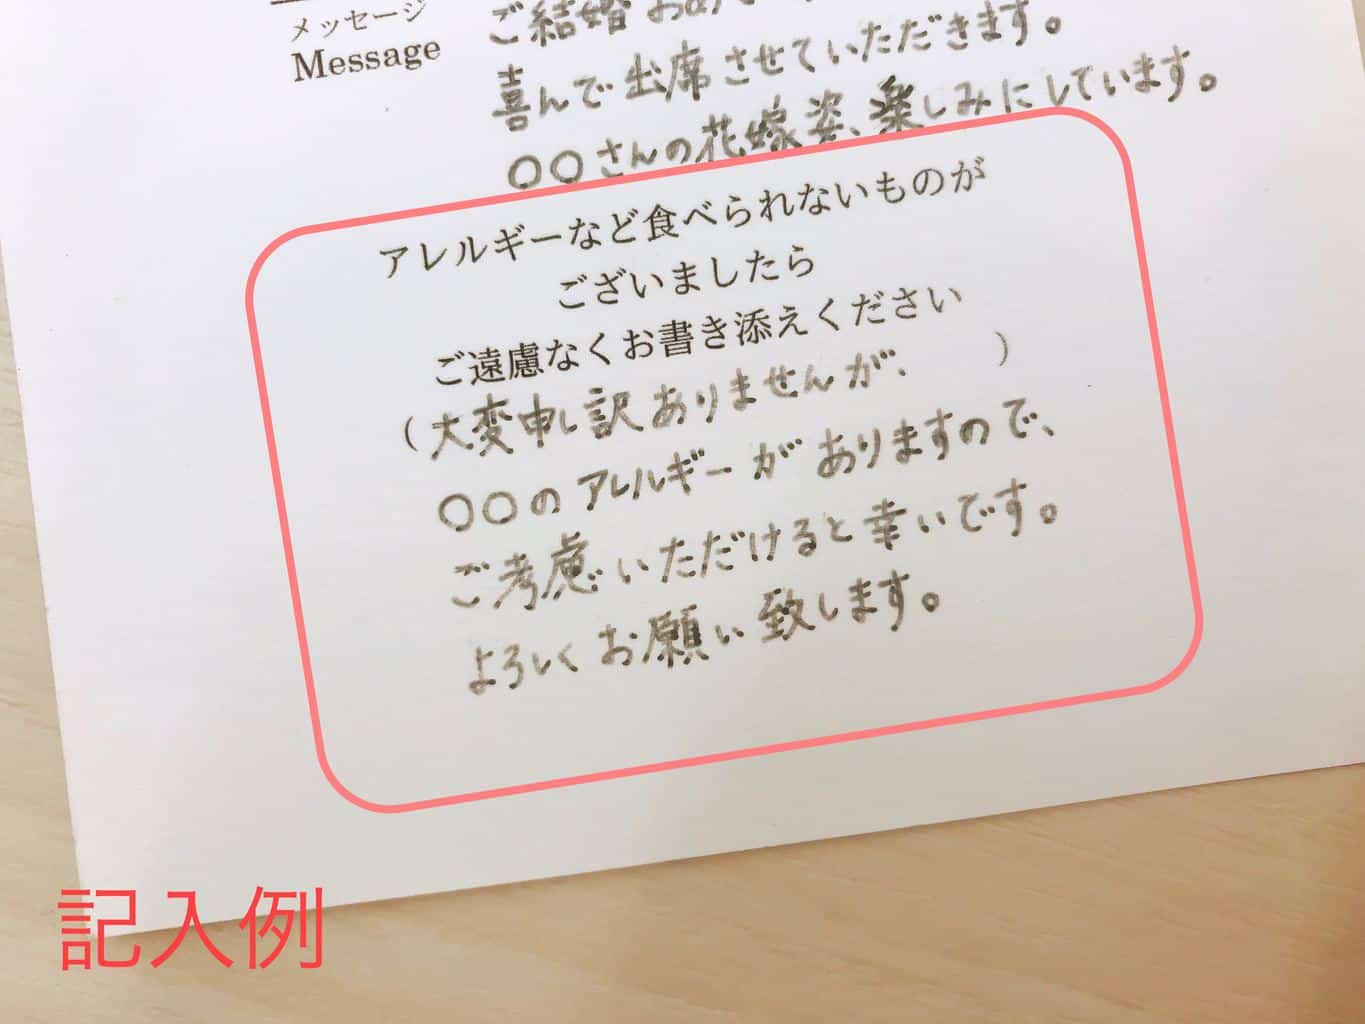 メッセージ
Message
ご結婚お
喜んで出席させていただきます。
〇〇さんの花嫁姿、楽しみにしています。
アレルギーなど食べられないものが
ございましたら
ご遠慮なくお書き添えください
(大変申し訳ありませんが、 )
〇〇のアレルギーがありますので、
ご考慮いただけると幸いです。
よろしくお願い致します。
記入例